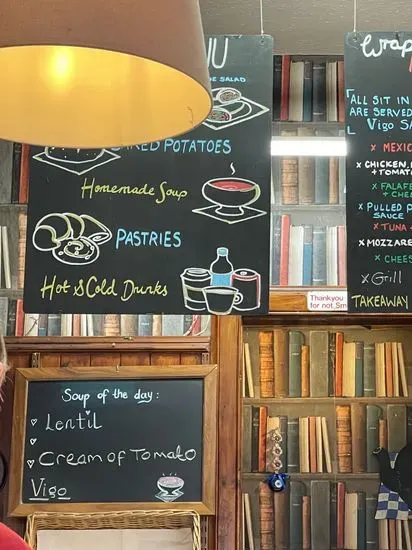 NU
SALAD
POTATOES
Homemade Soup
PASTRIES
Hot & Cold Drinks
Wrap
ALL SIT IN
ARE SERVED
Vigo SA
x MEXIC
x CHICKEN,
+ TOMAT
x FALAFE
+ CHE
x PULLED P
SAUCE
x TUNA +
x MOZZARE
x CHEES
x Grill
TAKEAWAY
Thankyou
for not Sm
Soup of the day:
Lentil
Cream of Tomato
Vigo